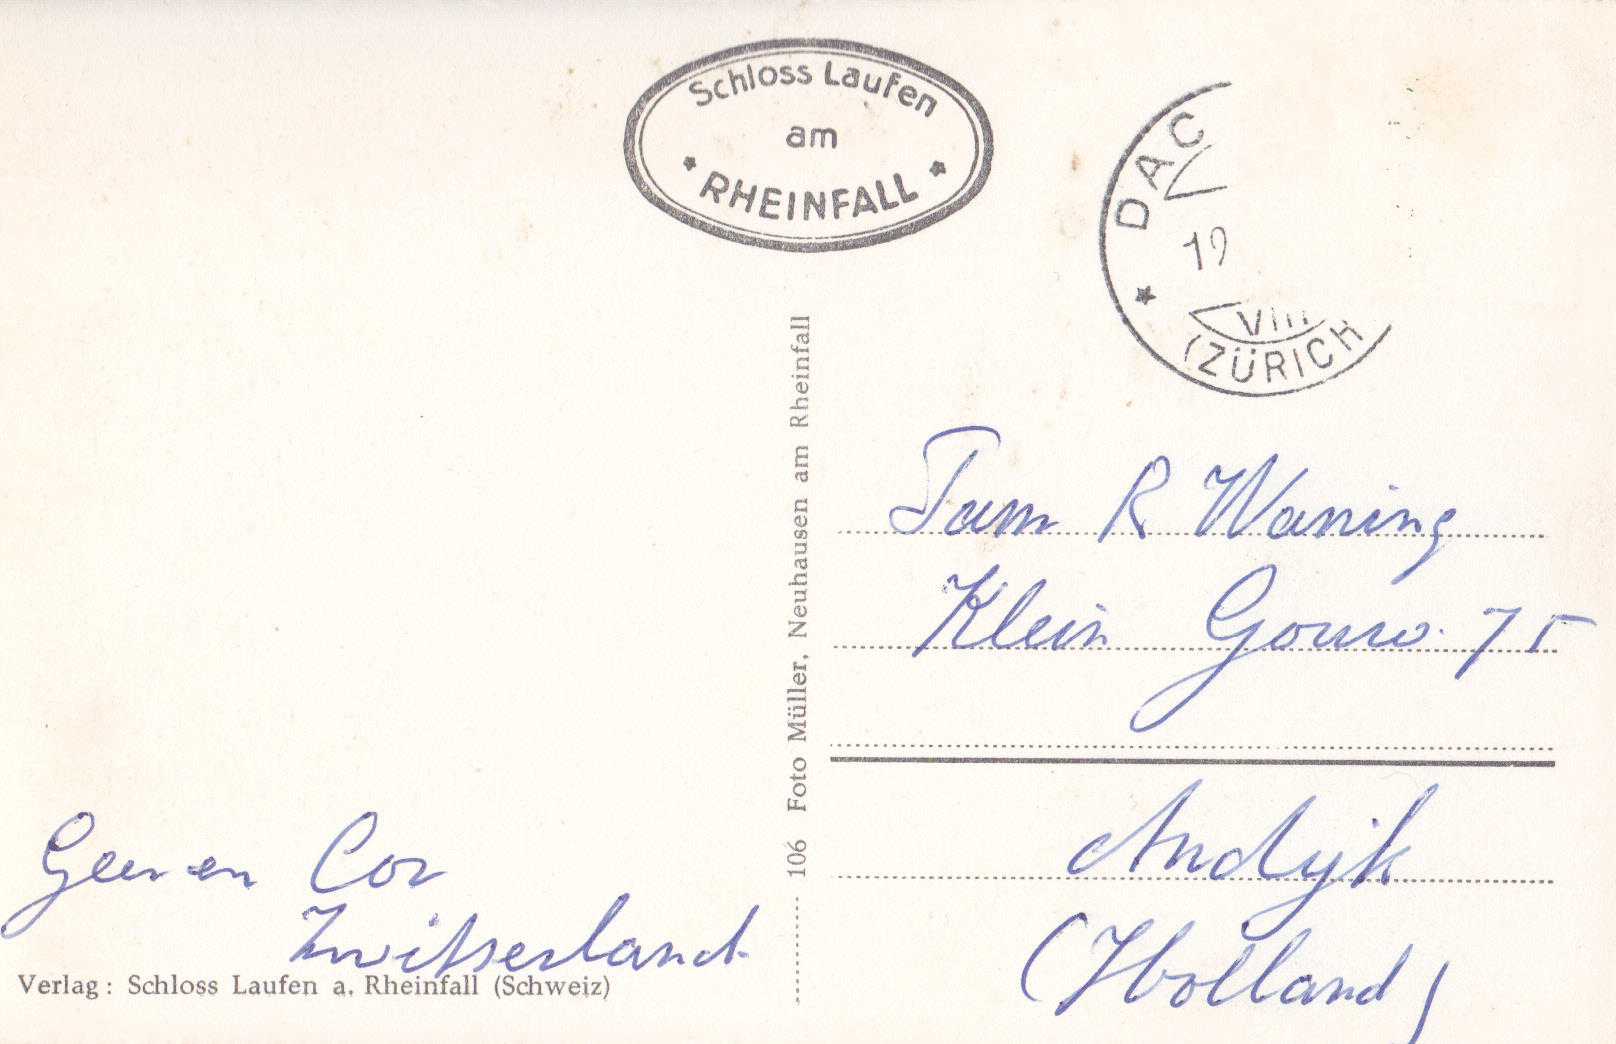 Schloss Laufen
am
* RHEINFALL *
* DAC
19
VIII
(ZÜRICH
106 Foto Müller, Neuhausen am Rheinfall
Fam R Waning
Klein Gouw. 75
Andijk
(Holland)
Geer en Cor
Zwitserland.
Verlag: Schloss Laufen a. Rheinfall (Schweiz)